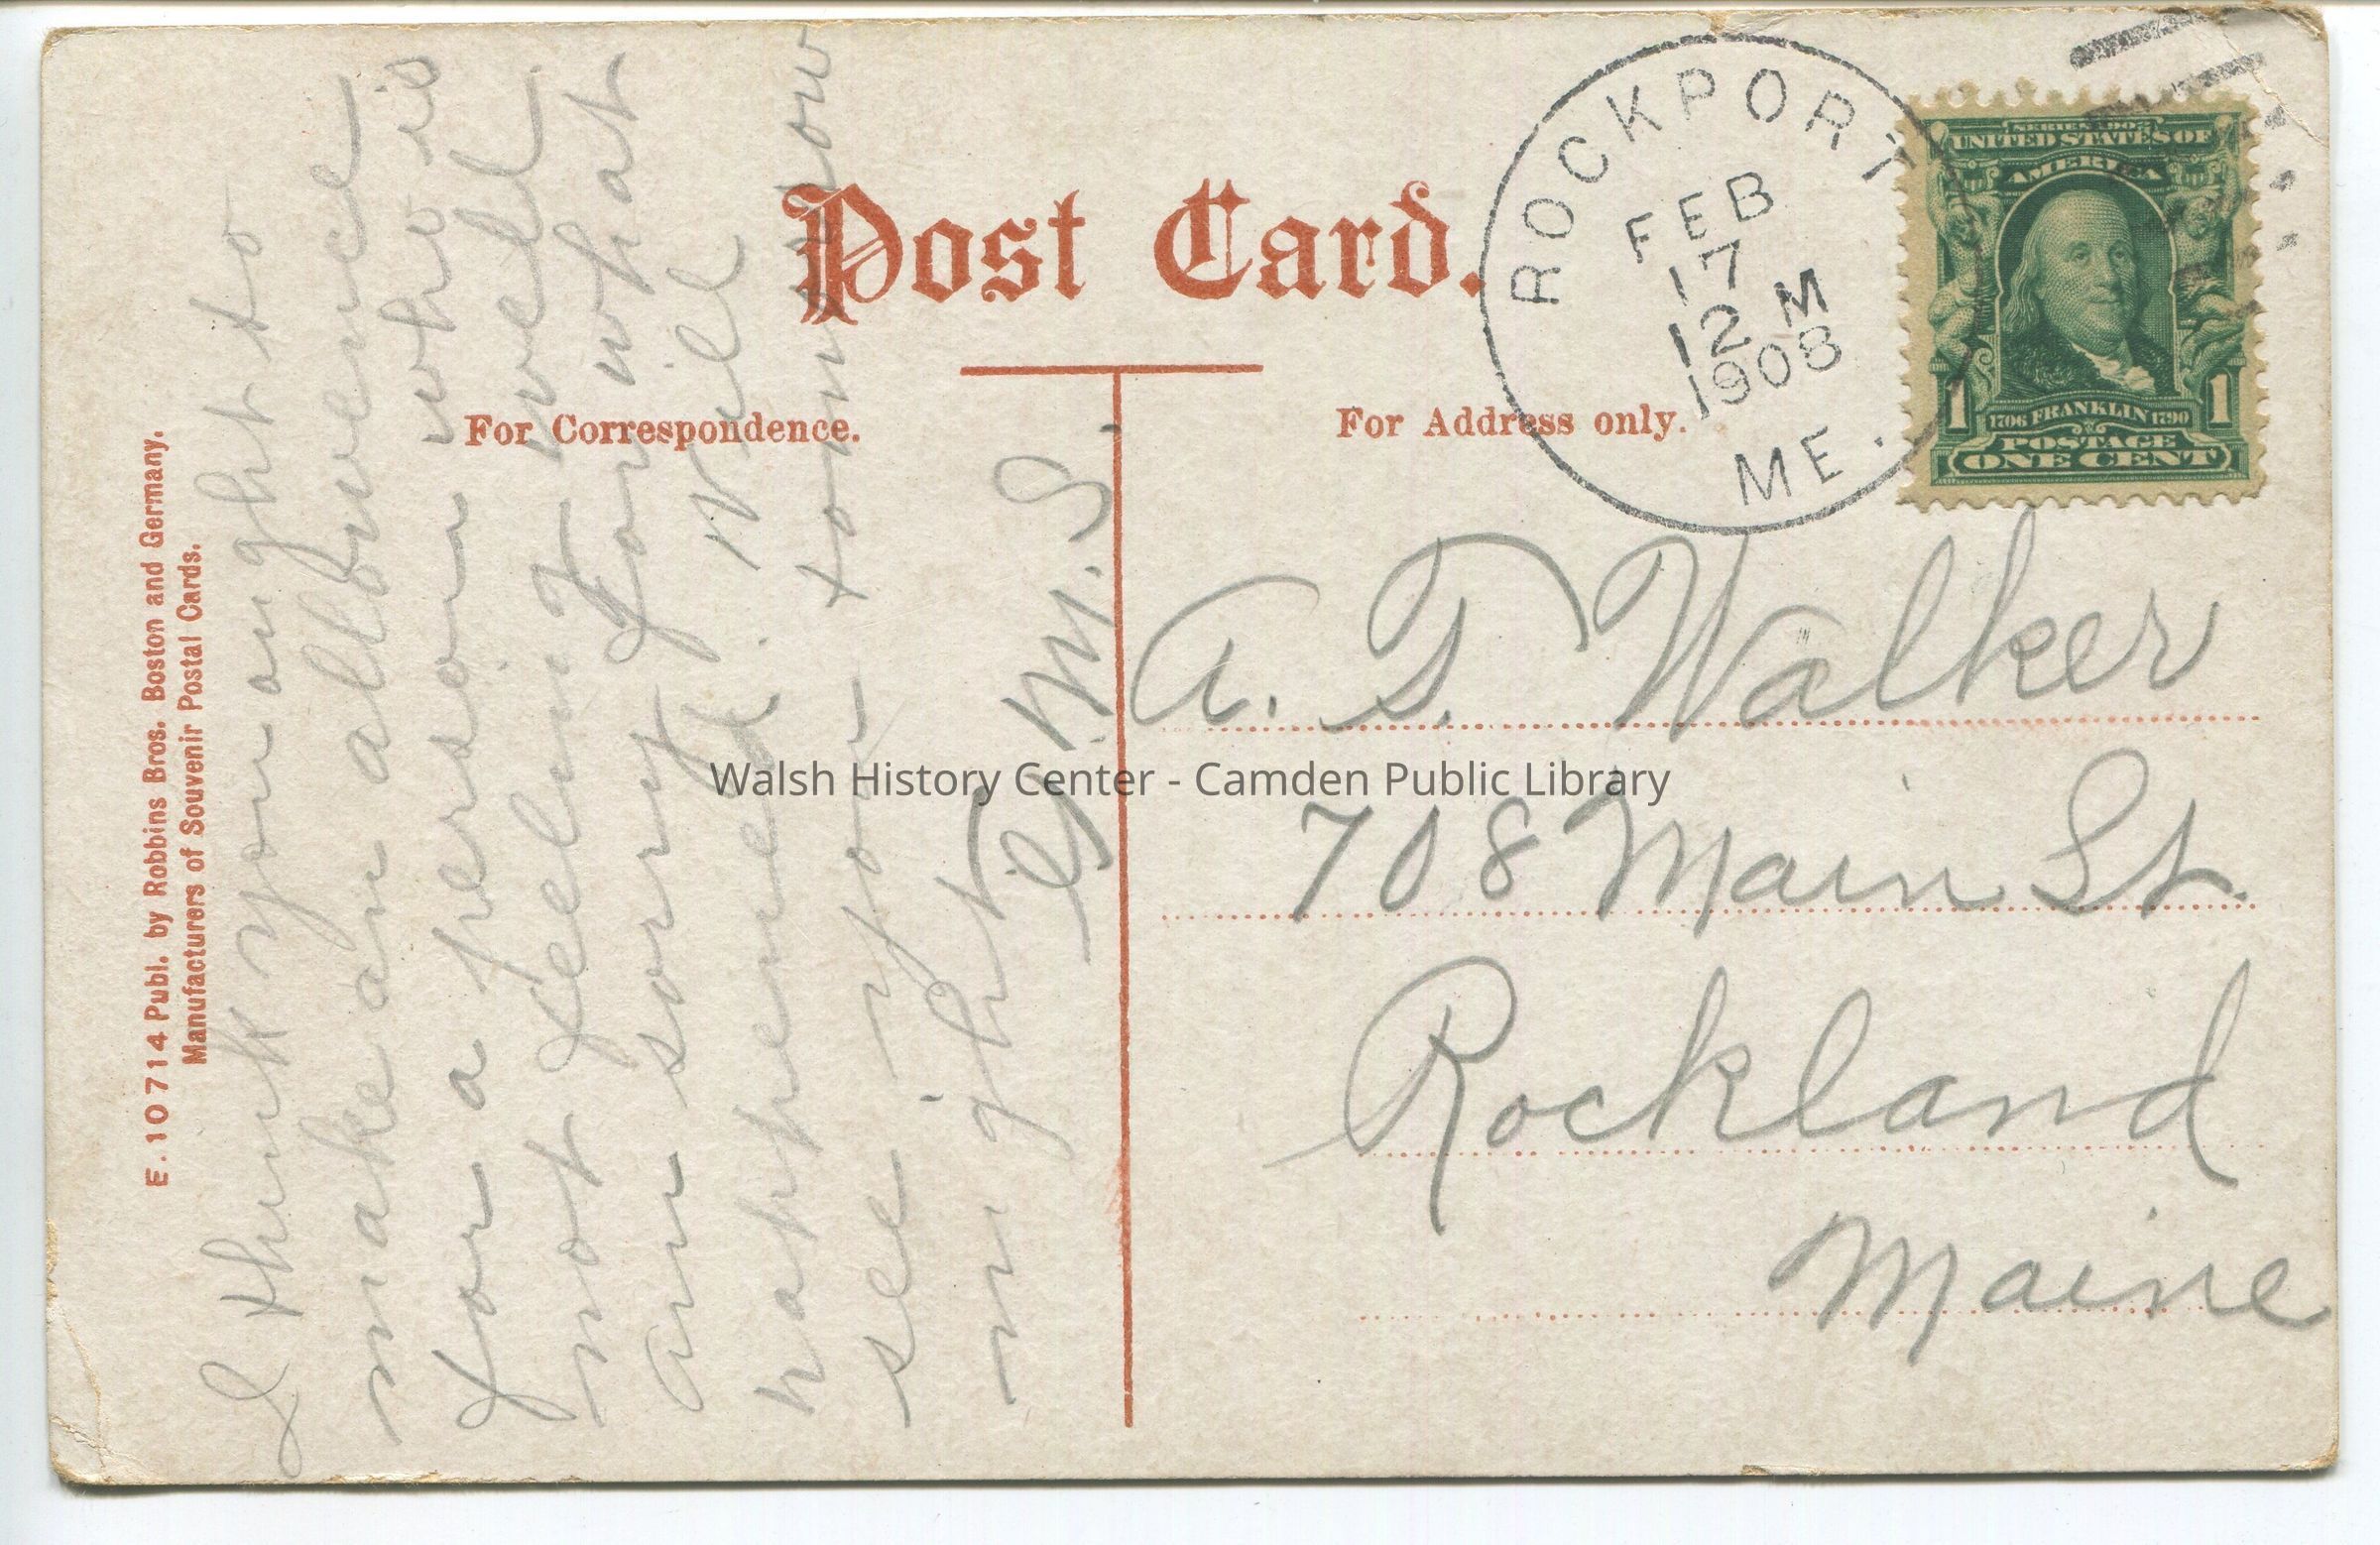 Post Card.
For Correspondence.
For Address only.
ROCKPORT
FEB
17
12 M
1908
ME.
SERIES 1902
UNITED STATES OF
AMERICA
1 1
1706 FRANKLIN 1790
POSTAGE
ONE CENT
E. 10714 Publ. by Robbins Bros. Boston and Germany.
Manufacturers of Souvenir Postal Cards.
I think you ought to
make an allowence
for a person who is
not feeling well.
am sorry for what
happened. Will
see you tomorrow
night.
G. M. S.
A. T. Walker
708 Main St.
Rockland
Maine
Walsh History Center - Camden Public Library